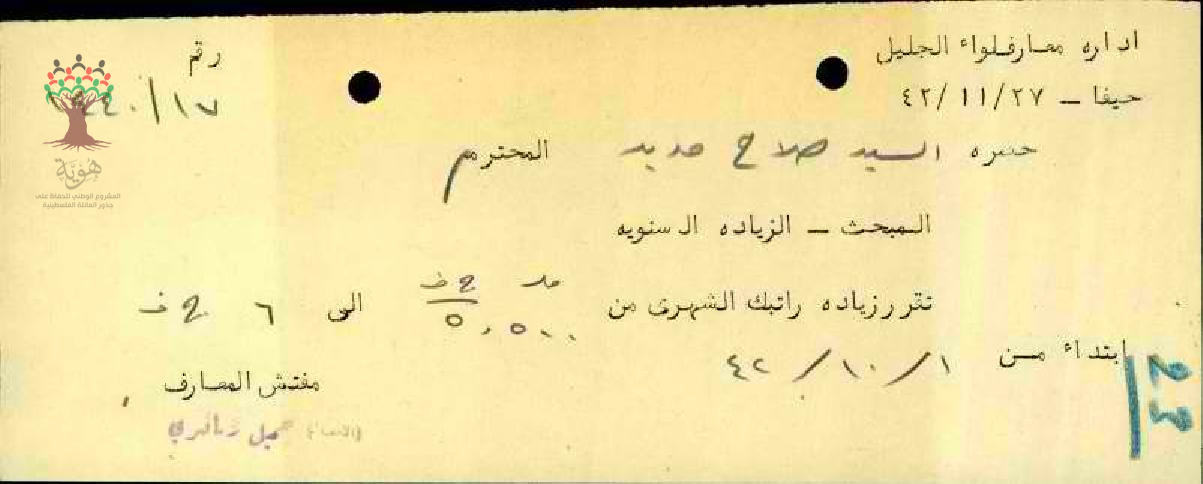 اداره معارف لواء الجليل
رقم
حيفا – ٤٢/١١/٢٧
١٧/
حضره السيد صلاح حديد المحترم
المبحث – الزياده السنويه
تقرر زياده راتبك الشهرى من مل ج ف ٥,٥٠٠ الى ٦ ج ف
ابتداء مـن ٤٢/١٠/١
23
مفتش المعارف
(الامضاء) جميل
هُويَّة
المشروع الوطني للحفاظ على
جذور العائلة الفلسطينية